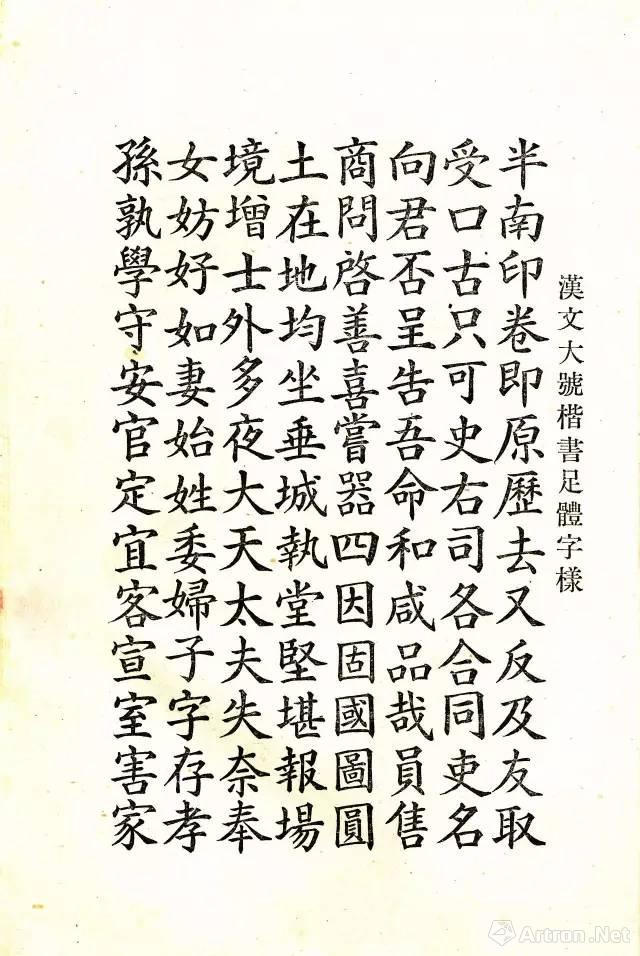 漢文大號楷書足體字樣
半南印卷即原歷去又反及友取
受口古只可史右司各合同吏名
向君否呈告吾命和咸品哉員售
商問啓善喜嘗器四因固國圖圓
土在地均坐垂城執堂堅堪報場
境增士外多夜大天太夫失奈奉
女妨好如妻始姓委婦子字存孝
孫孰學守安官定宜客宣室害家
Artron.Net